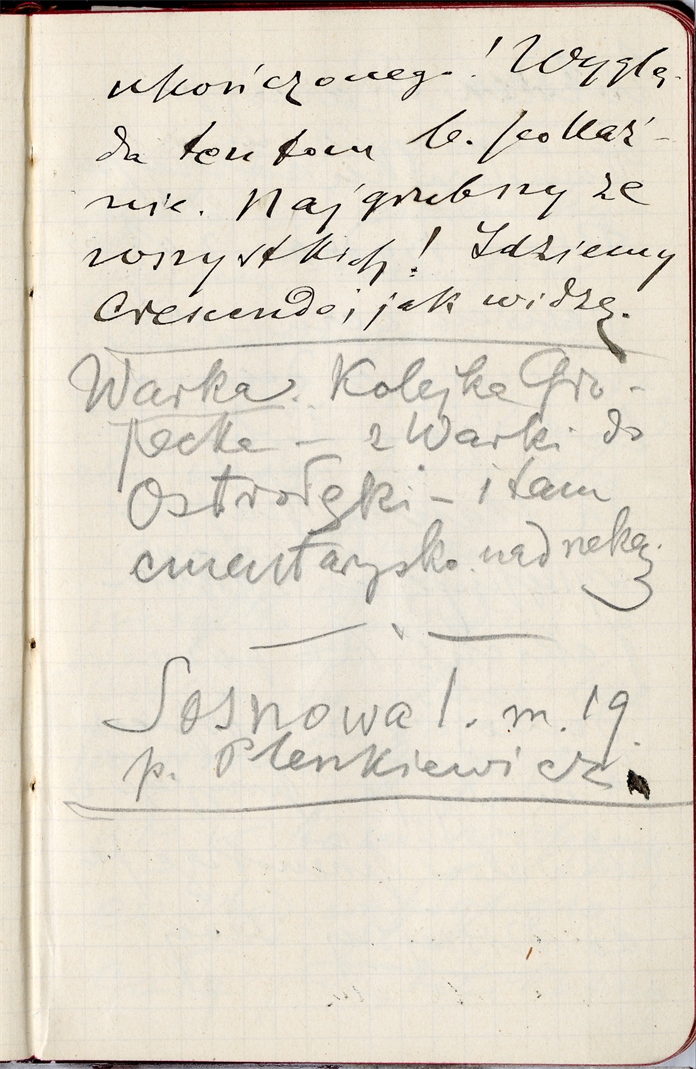 ukończonego! Wyglą-
da ten tom b. pokaź-
nie. Najgrubszy ze
wszystkich! Idziemy
Crescendo, jak widzę.
Warka. Kolejka Gró-
jecka – z Warki do
Ostrołęki – i tam
cmentarzysko nad rzeką.
Sosnowa 1. m. 19
p. Plenkiewicz.